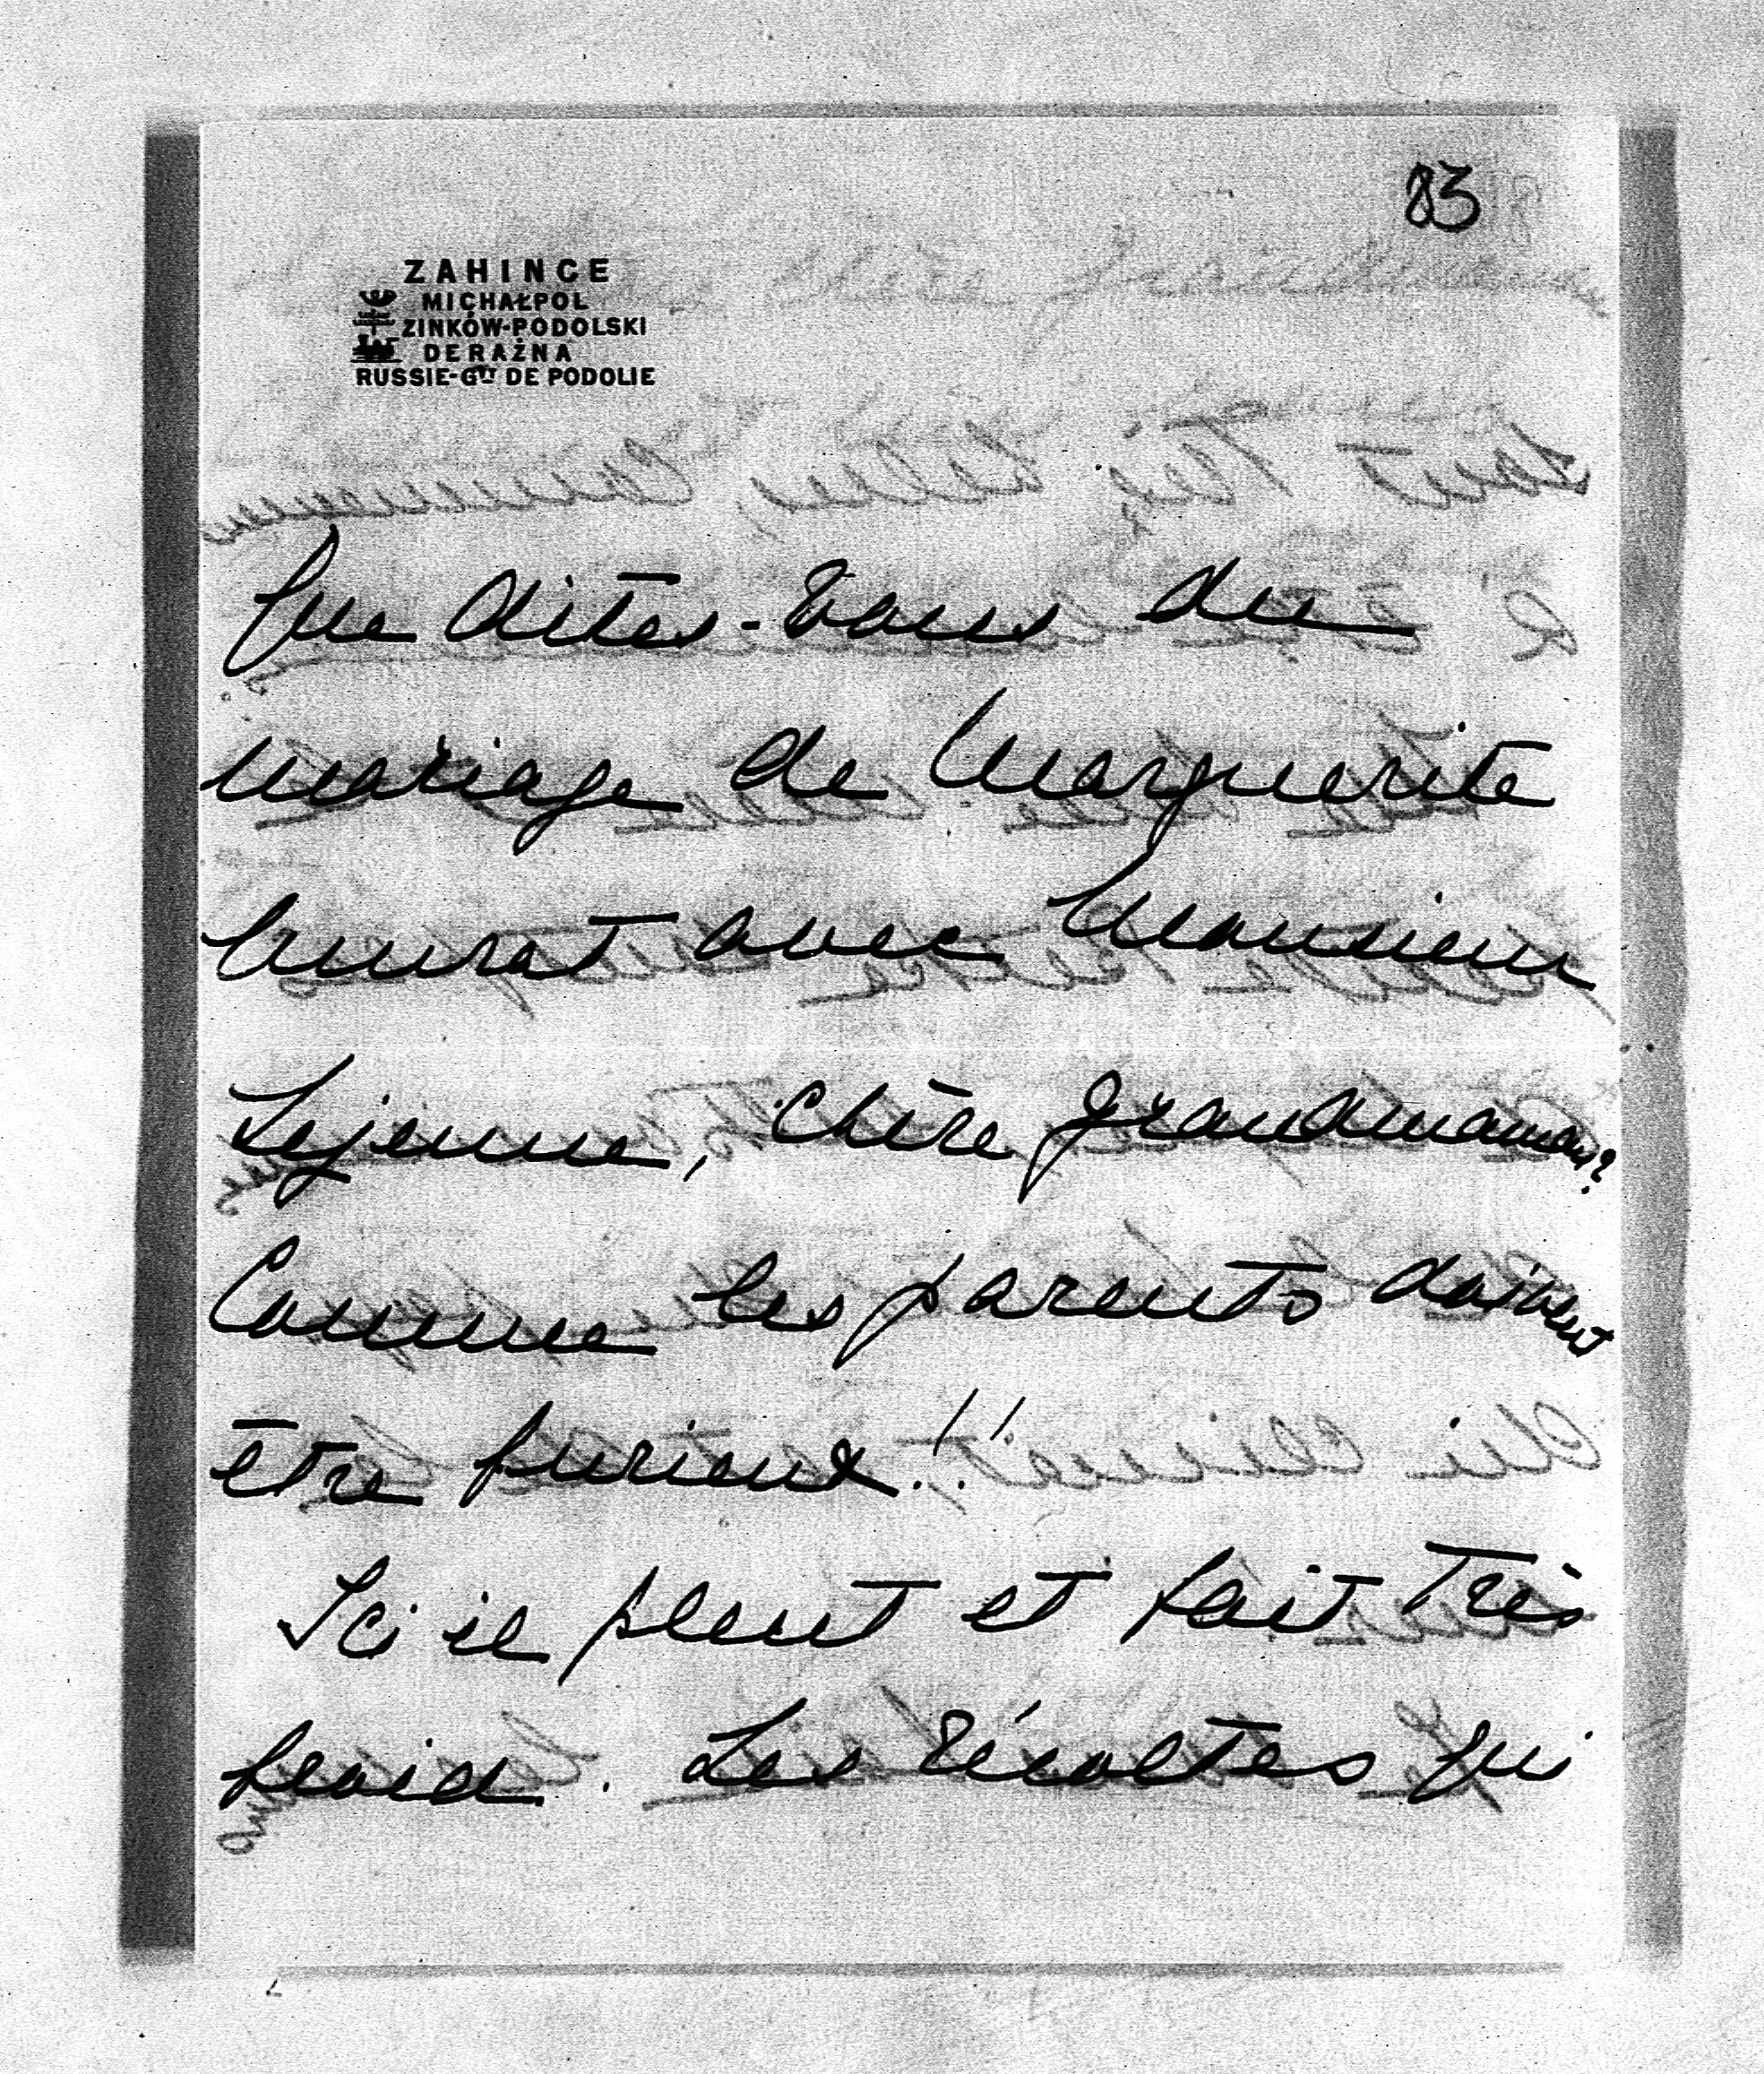 83
ZAHINCE
MICHAŁPOL
ZINKÓW-PODOLSKI
DERAŻNA
RUSSIE-Gᵗ DE PODOLIE
Que dites-vous du
mariage de Marguerite
Murat avec Monsieur
Lejeune, chère grandmaman?
Comme les parents doivent
être furieux!!
Ici il pleut et fait très
froid. Les récoltes qui